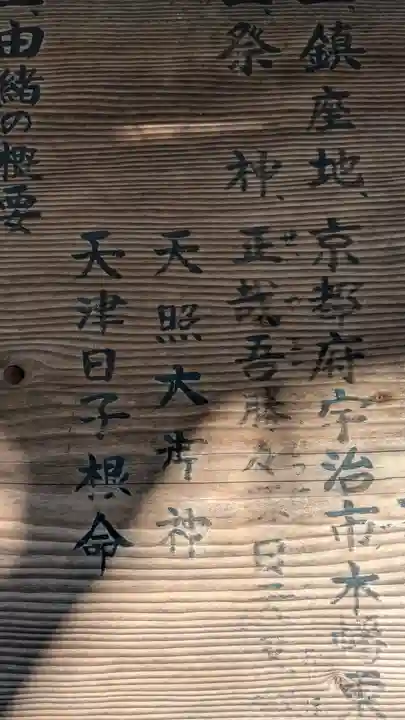 一、鎮座地、京都府宇治市木幡東
一、祭 神、正哉吾勝々
天照大御神
天津日子根命
一、由緒の概要